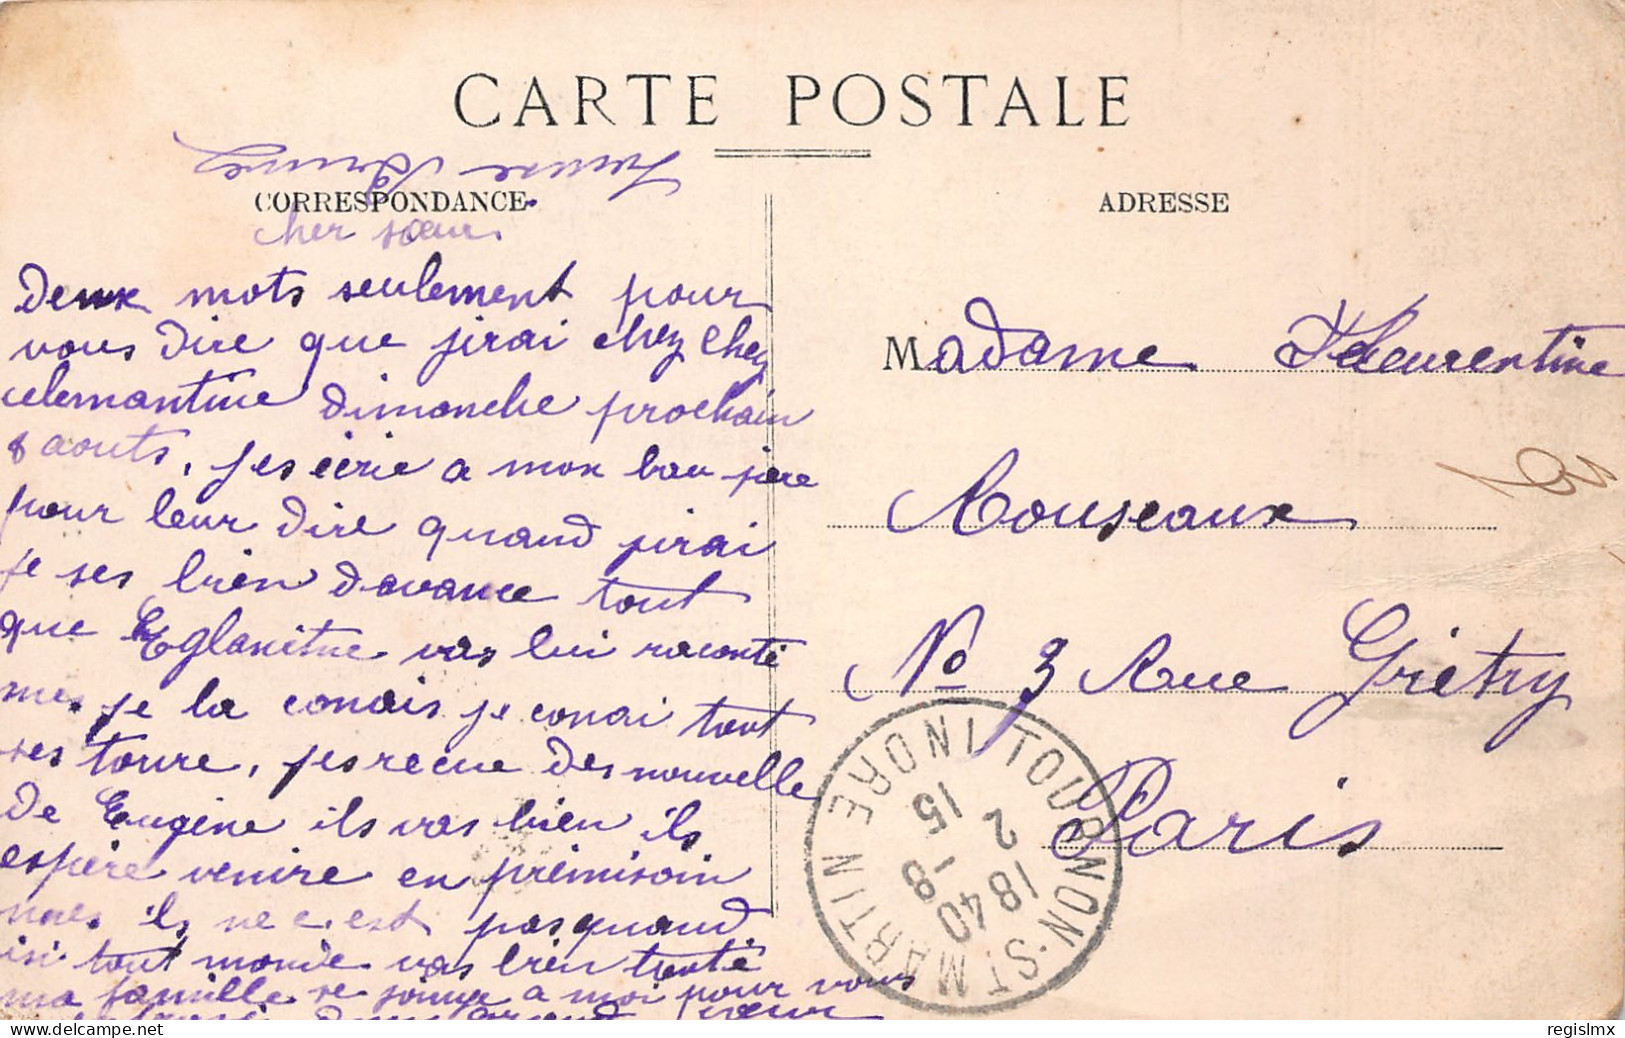 CARTE POSTALE
CORRESPONDANCE
cher sœur
Deux mots seulement pour
vous dire que jirai chez chez
celemantine dimanche prochain
8 aouts, jes écrie a mon bau père
pour leur dire quand jirai
je ses bien davance tout
que Eglantine vas lui raconté
mes je la conais je conai tout
ses toure, jes recue des nouvelle
de Eugène ils vas bien ils
espère venire en pèrmisoin
mes ils ne c est pas quand
isi tout monde vas bien
ma famille se joingt a moi pour vous
ADRESSE
Madame Florentine
Rouseaux
No 3 Rue Grétry
Paris
TOURNON-ST MARTIN INDRE
18 40
2 -8
15
www.delcampe.net
regislmx